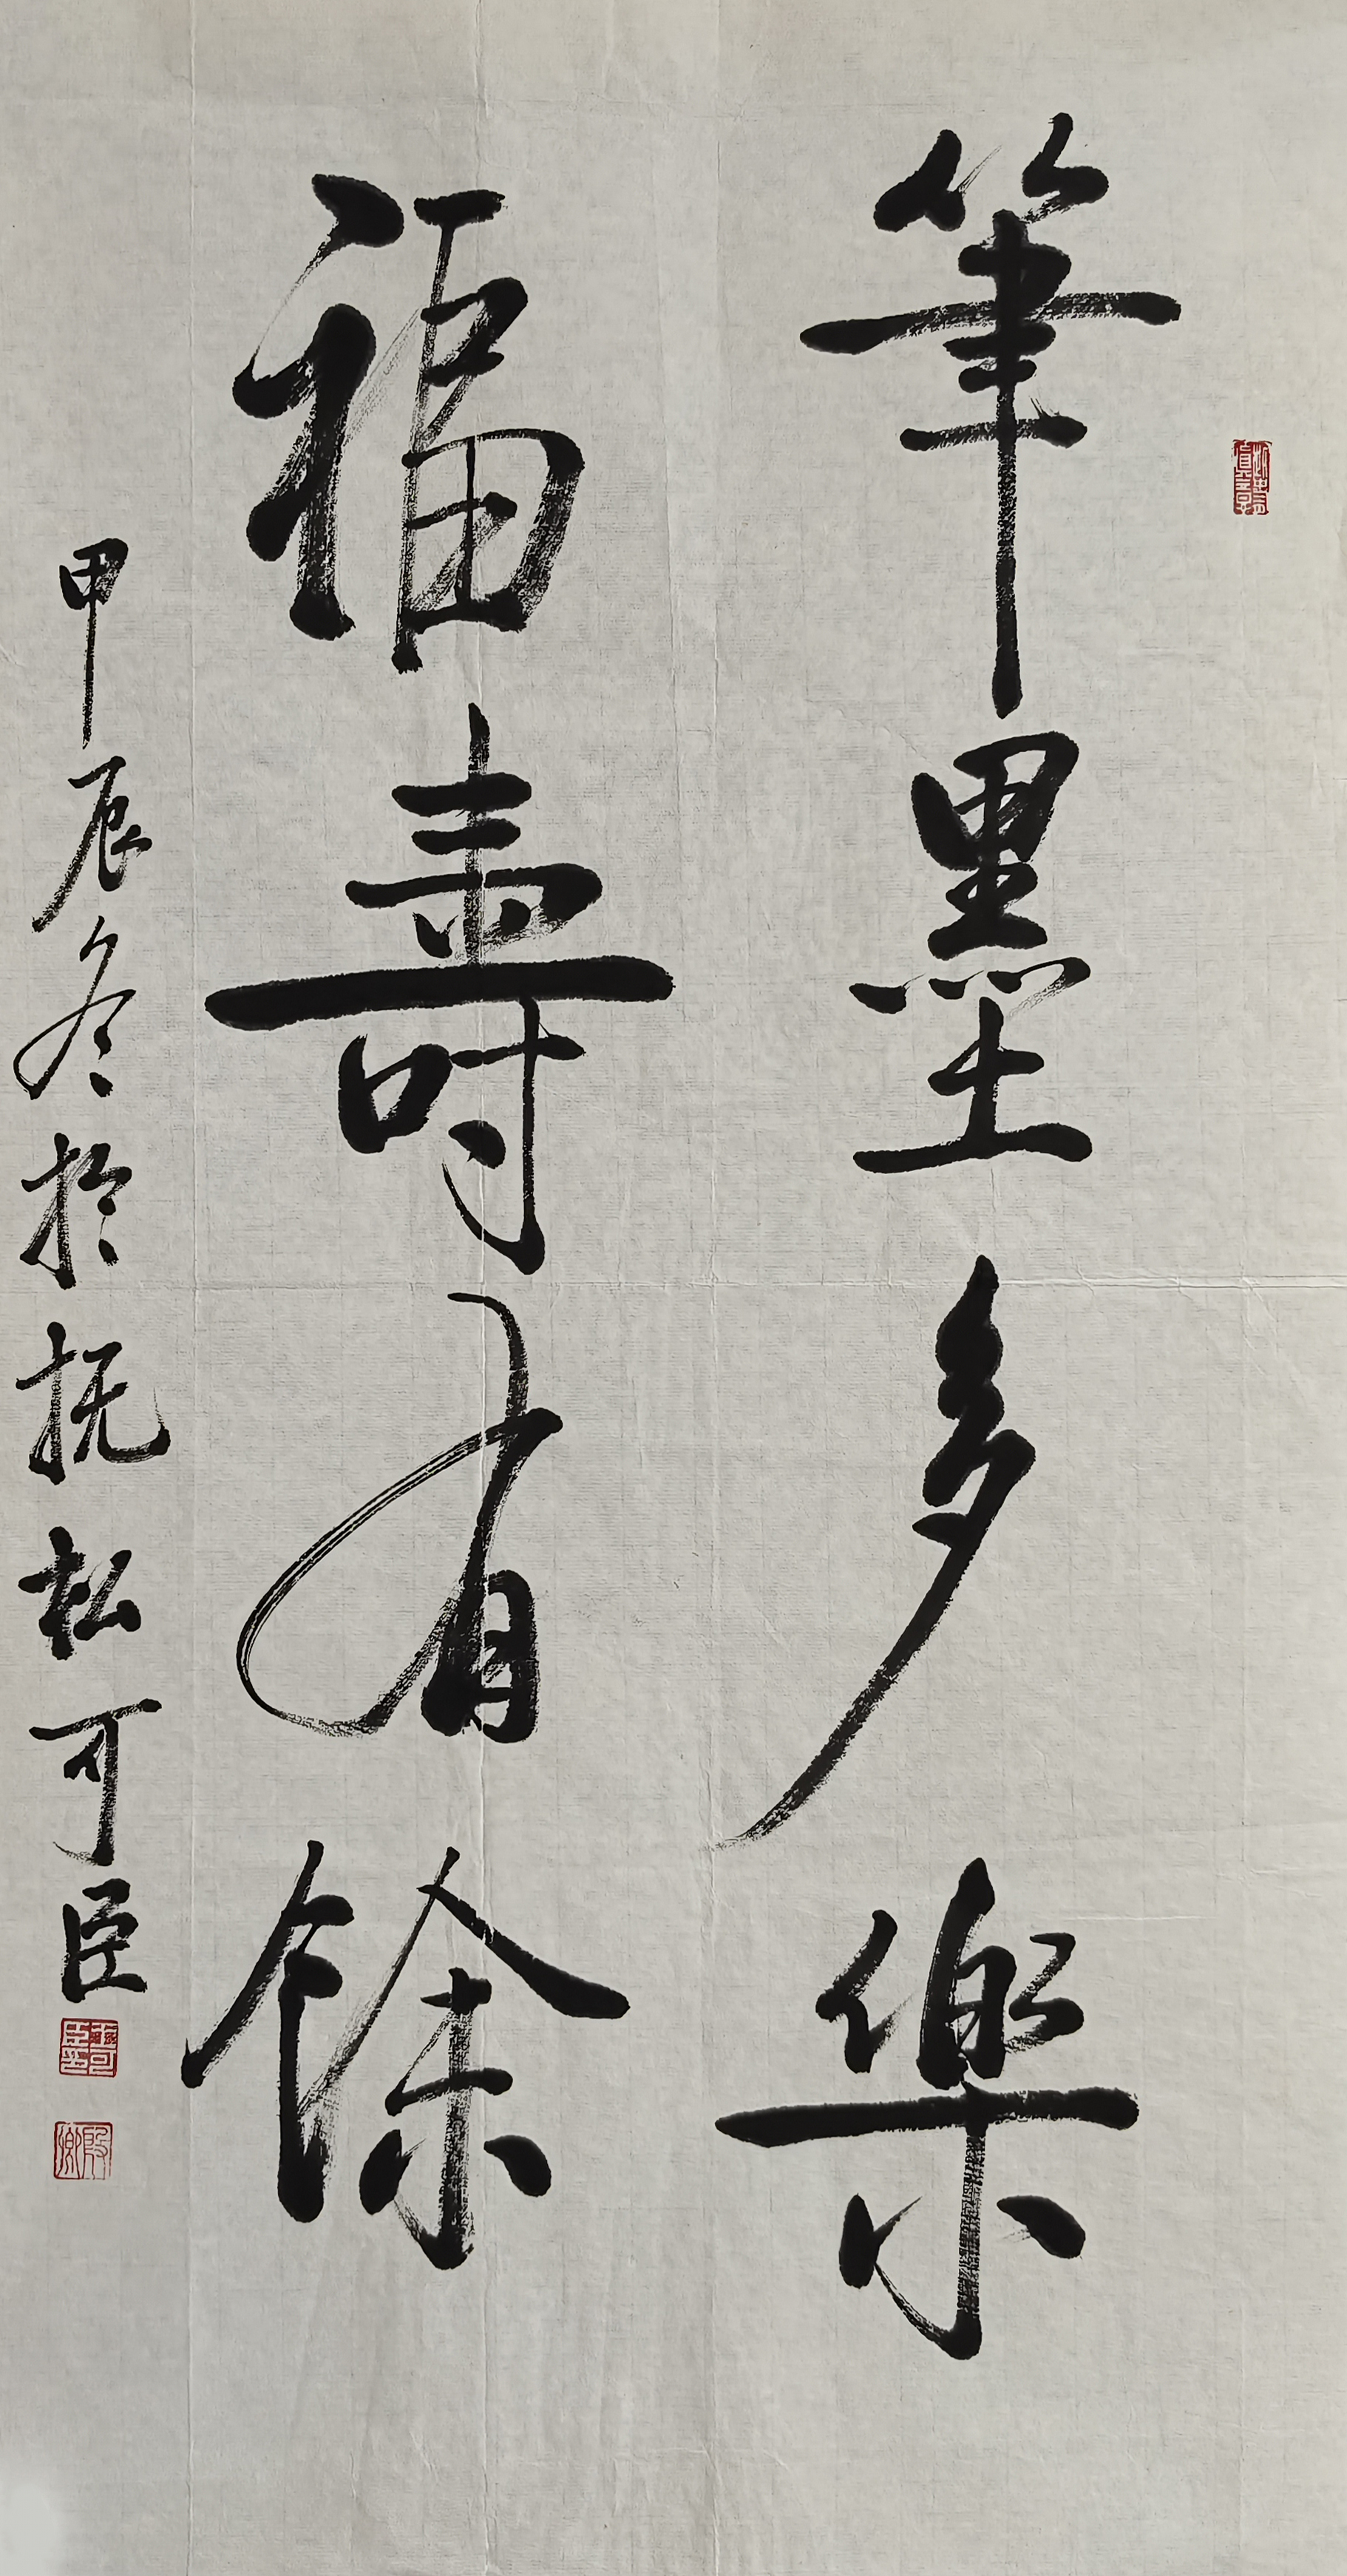 筆墨多樂
福壽有餘
甲辰冬於抚松可臣